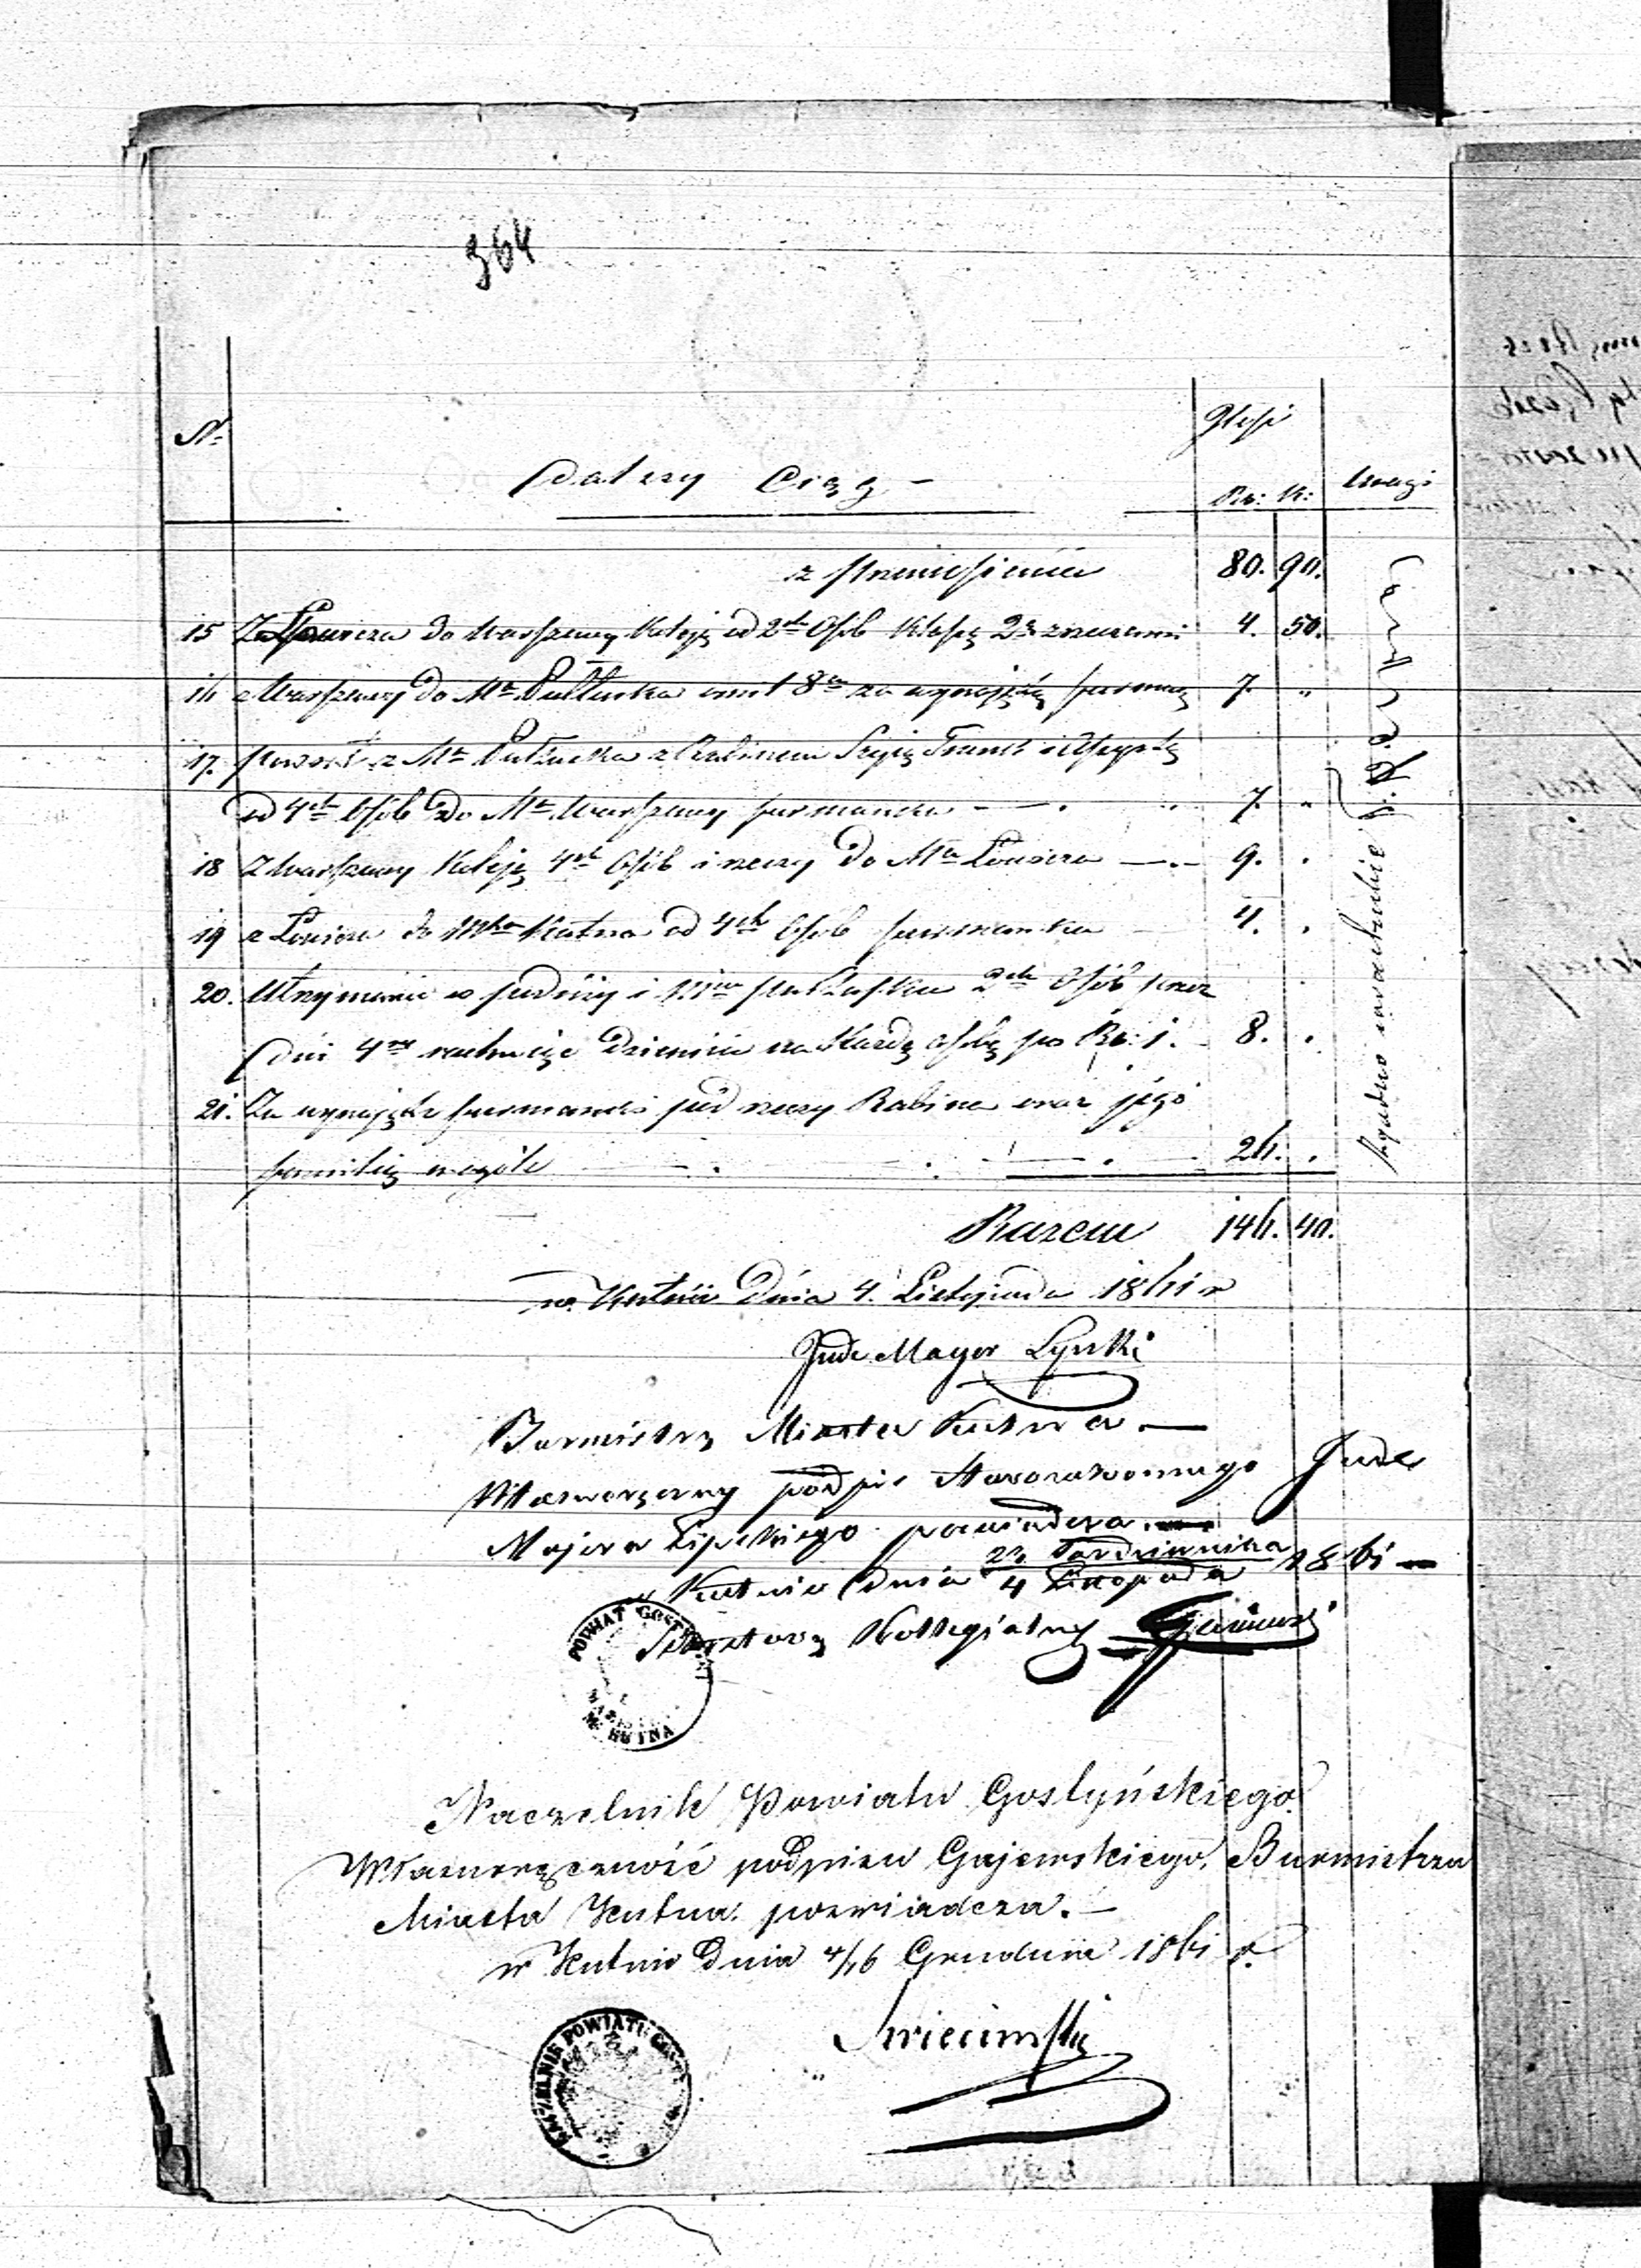 364
Nr
Dalszy Ciąg –
Ilość
Rs: K:
Uwagi
z przeniesienia 80. 90.
15 Z Łowicza do Warszawy Koleją od 2ch Osób Klassą 2gą z rzeczami 4. 50.
16 z Warszawy do Mta Pułtuska mil 8m za wynajęcie furmanki 7. „
17. powrót z Mta Pułtuska z Rabinem Szyją Trunk i Assystą
od 4ch Osób do Mta Warszawy furmanka — . 7. „
18 Z Warszawy Koleją 4ch Osób i rzeczy do Mta Łowicza —.— 9. .
19 z Łowicza do Mta Kutna od 4ch Osób furmanka 4. .
20. Utrzymanie w podróży i Mcie Pułtusku 2ch Osób przez
dni 4ry rachując dziennie na Każdą osobę po Rs: 1. 8. .
21. Za wynajęcie furmanki pod rzeczy Rabina oraz jego
familię w ogóle — . — . — . 26. .
Razem 146. 40.
w Kutnie Dnia 4. Listopada 1861 r
Jude Mayer Lipski
Burmistrz Miasta Kutna —
Własnoręczny podpis Starozakonnego Jude
Majera Lipskiego poswiadcza. —
w Kutnie dnia 23 Pazdziernika / 4 Listopada 1861 —
Sekretarz Kollegialny Gajewski
POWIAT GOSTYŃSKI
M. KUTNA
Naczelnik Powiatu Gostyńskiego
Własnoręczność podpisu Gajewskiego, Burmistrza
Miasta Kutna poświadcza. —
w Kutnie Dnia 4/16 Grudnia 1861 r.
Swiecimski
NACZELNIK POWIATU GOST